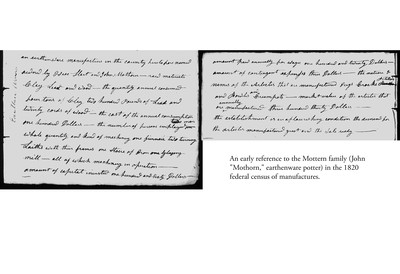 an earthen ware manufactory in the county
owned by and John Mothorn — raw materials
Clay Lead and wood — the quantity annual consumed
four tons of Clay two hundred Pounds of Lead and
twenty cords of wood — the cost of the annual consumption
one hundred Dollars — the number of persons employed
whole quantity and kind of machinery one furnace two turning
Laithes with their frames one glazing
mill — all of which machinery in operation
amount of capital invested one hundred and sixty Dollars
amount paid annually for wages one hundred and twenty Dollars
amount of contingent expenses thirty Dollars — the nature &
names of the articles that are manufactured
and — market value of the articles that
annually
are manufactured three hundred thirty Dollars —
the establishment is in condition the demand for
the articles manufactured great and the sale ready —
An early reference to the Mottern family (John
"Mothorn," earthenware potter) in the 1820
federal census of manufactures.